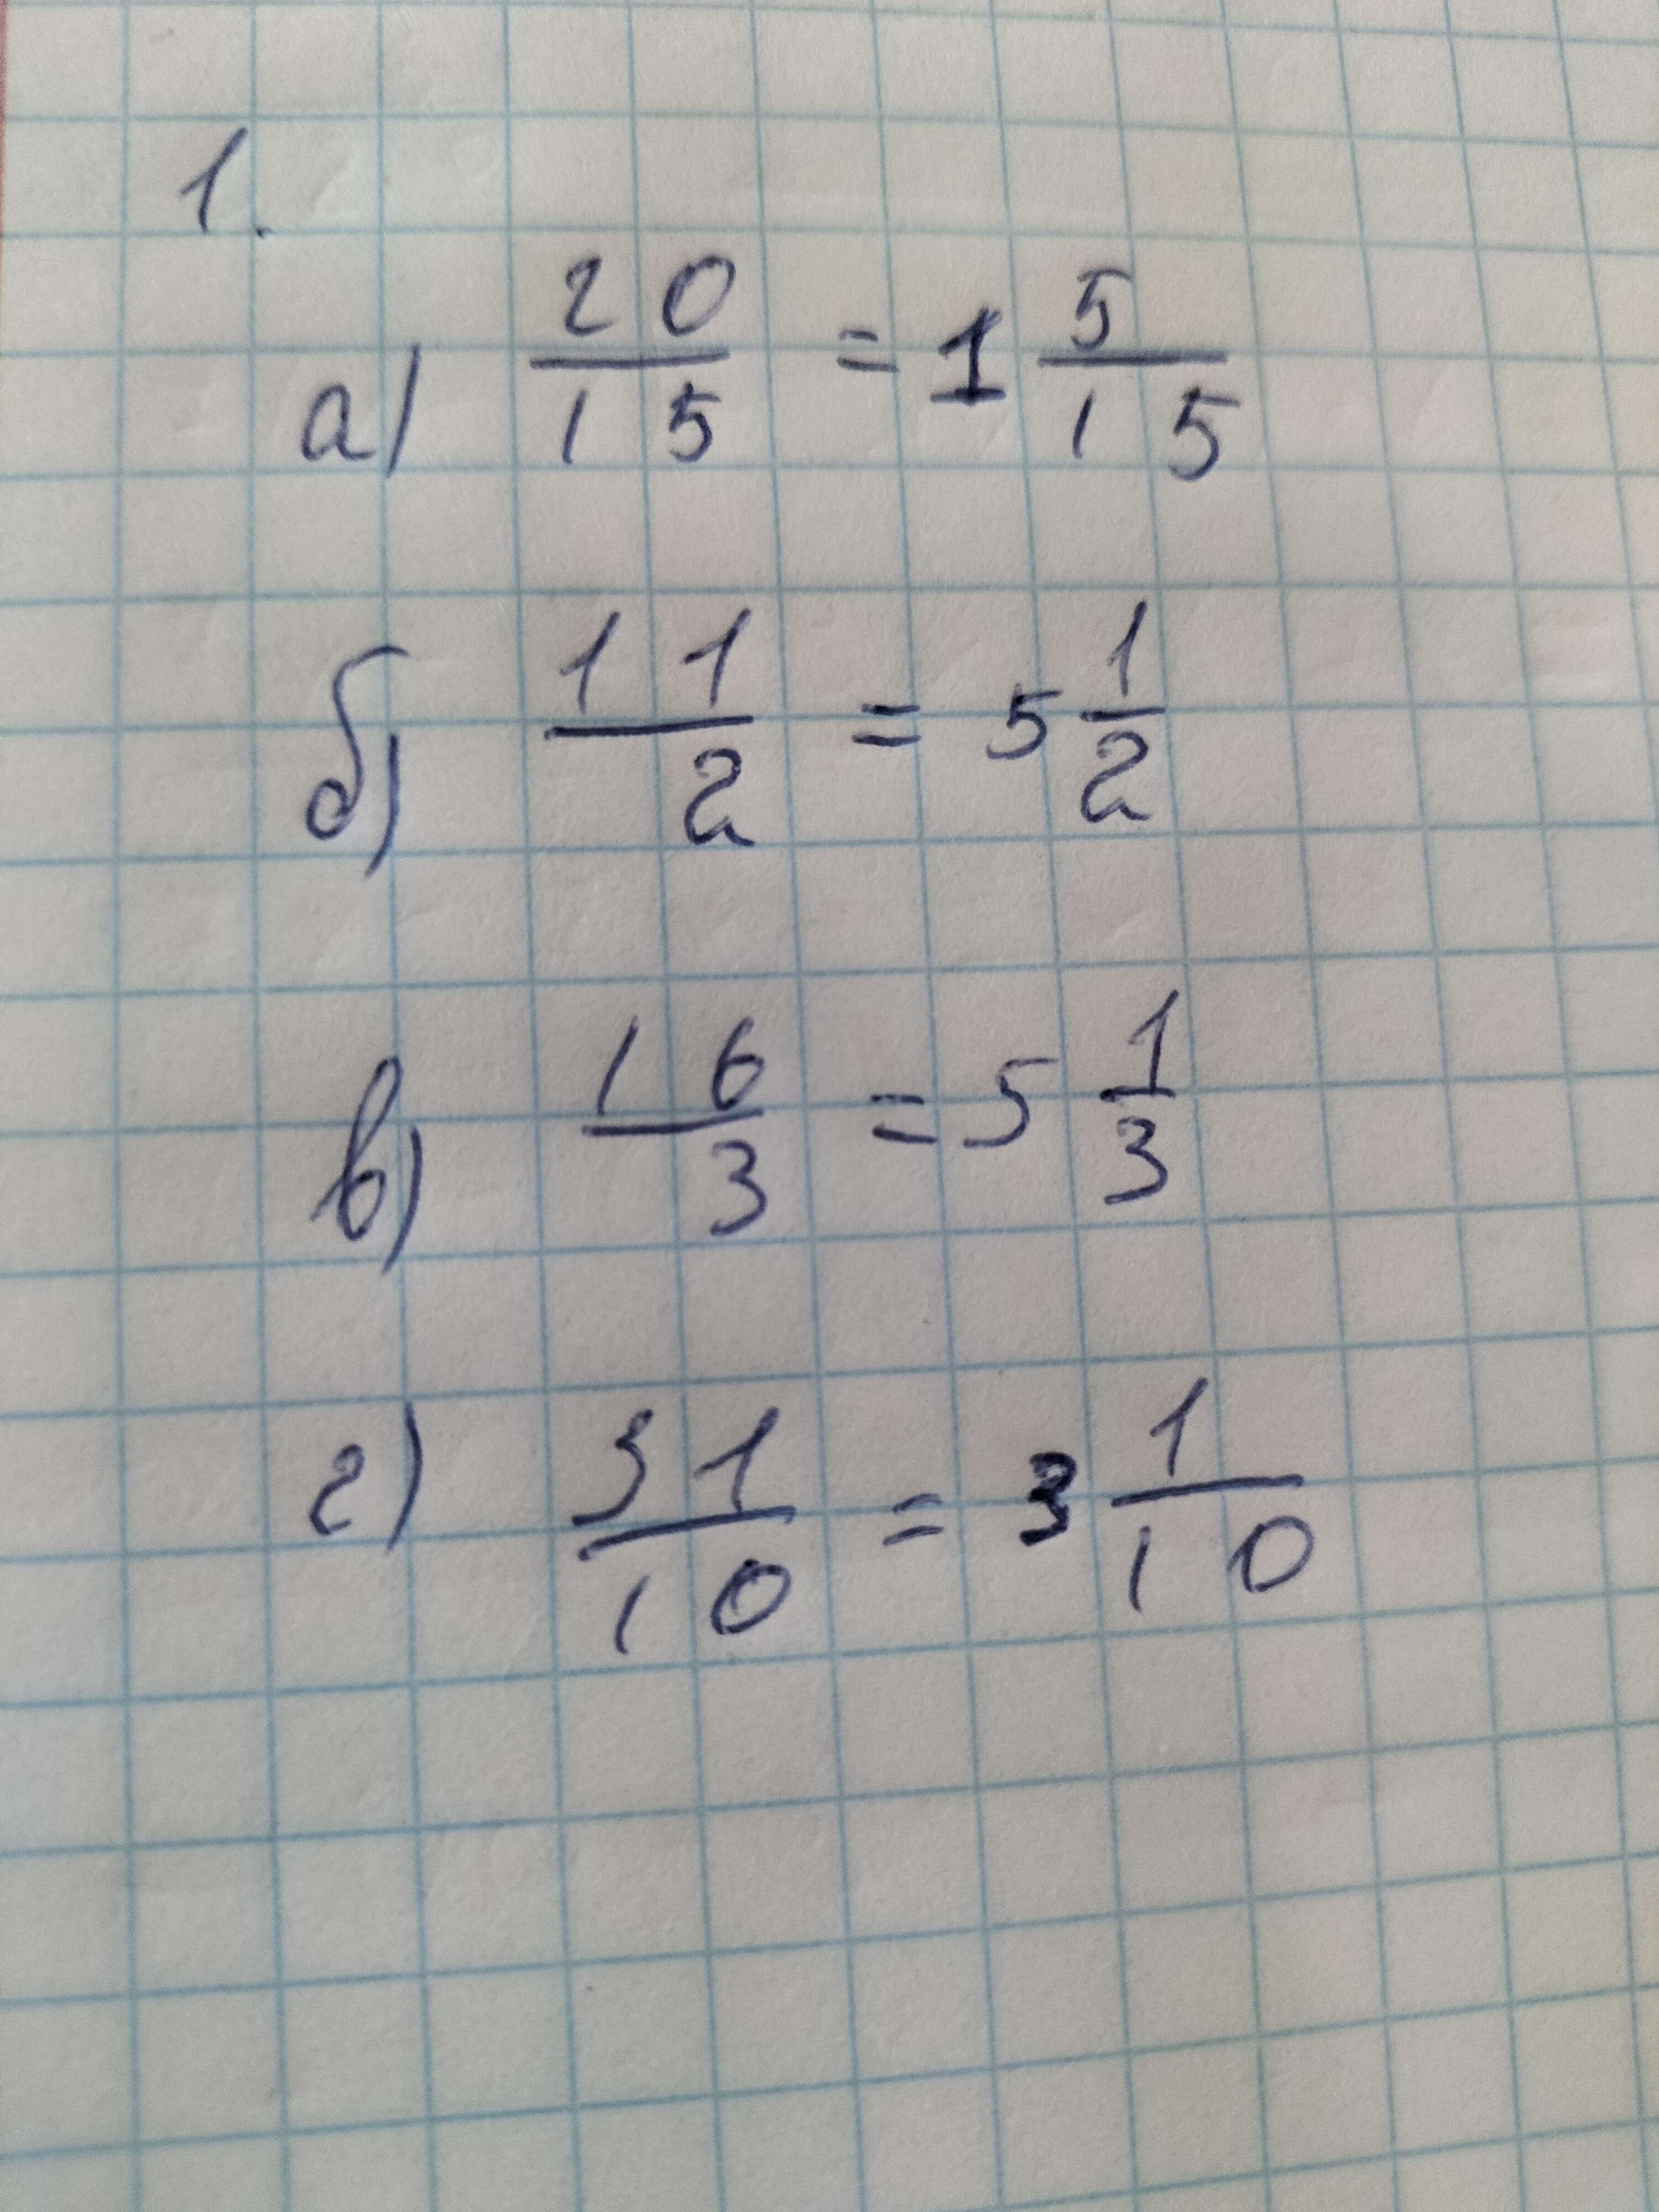 1.
а) 20/15 = 1 5/15
б) 11/2 = 5 1/2
в) 16/3 = 5 1/3
г) 31/10 = 3 1/10